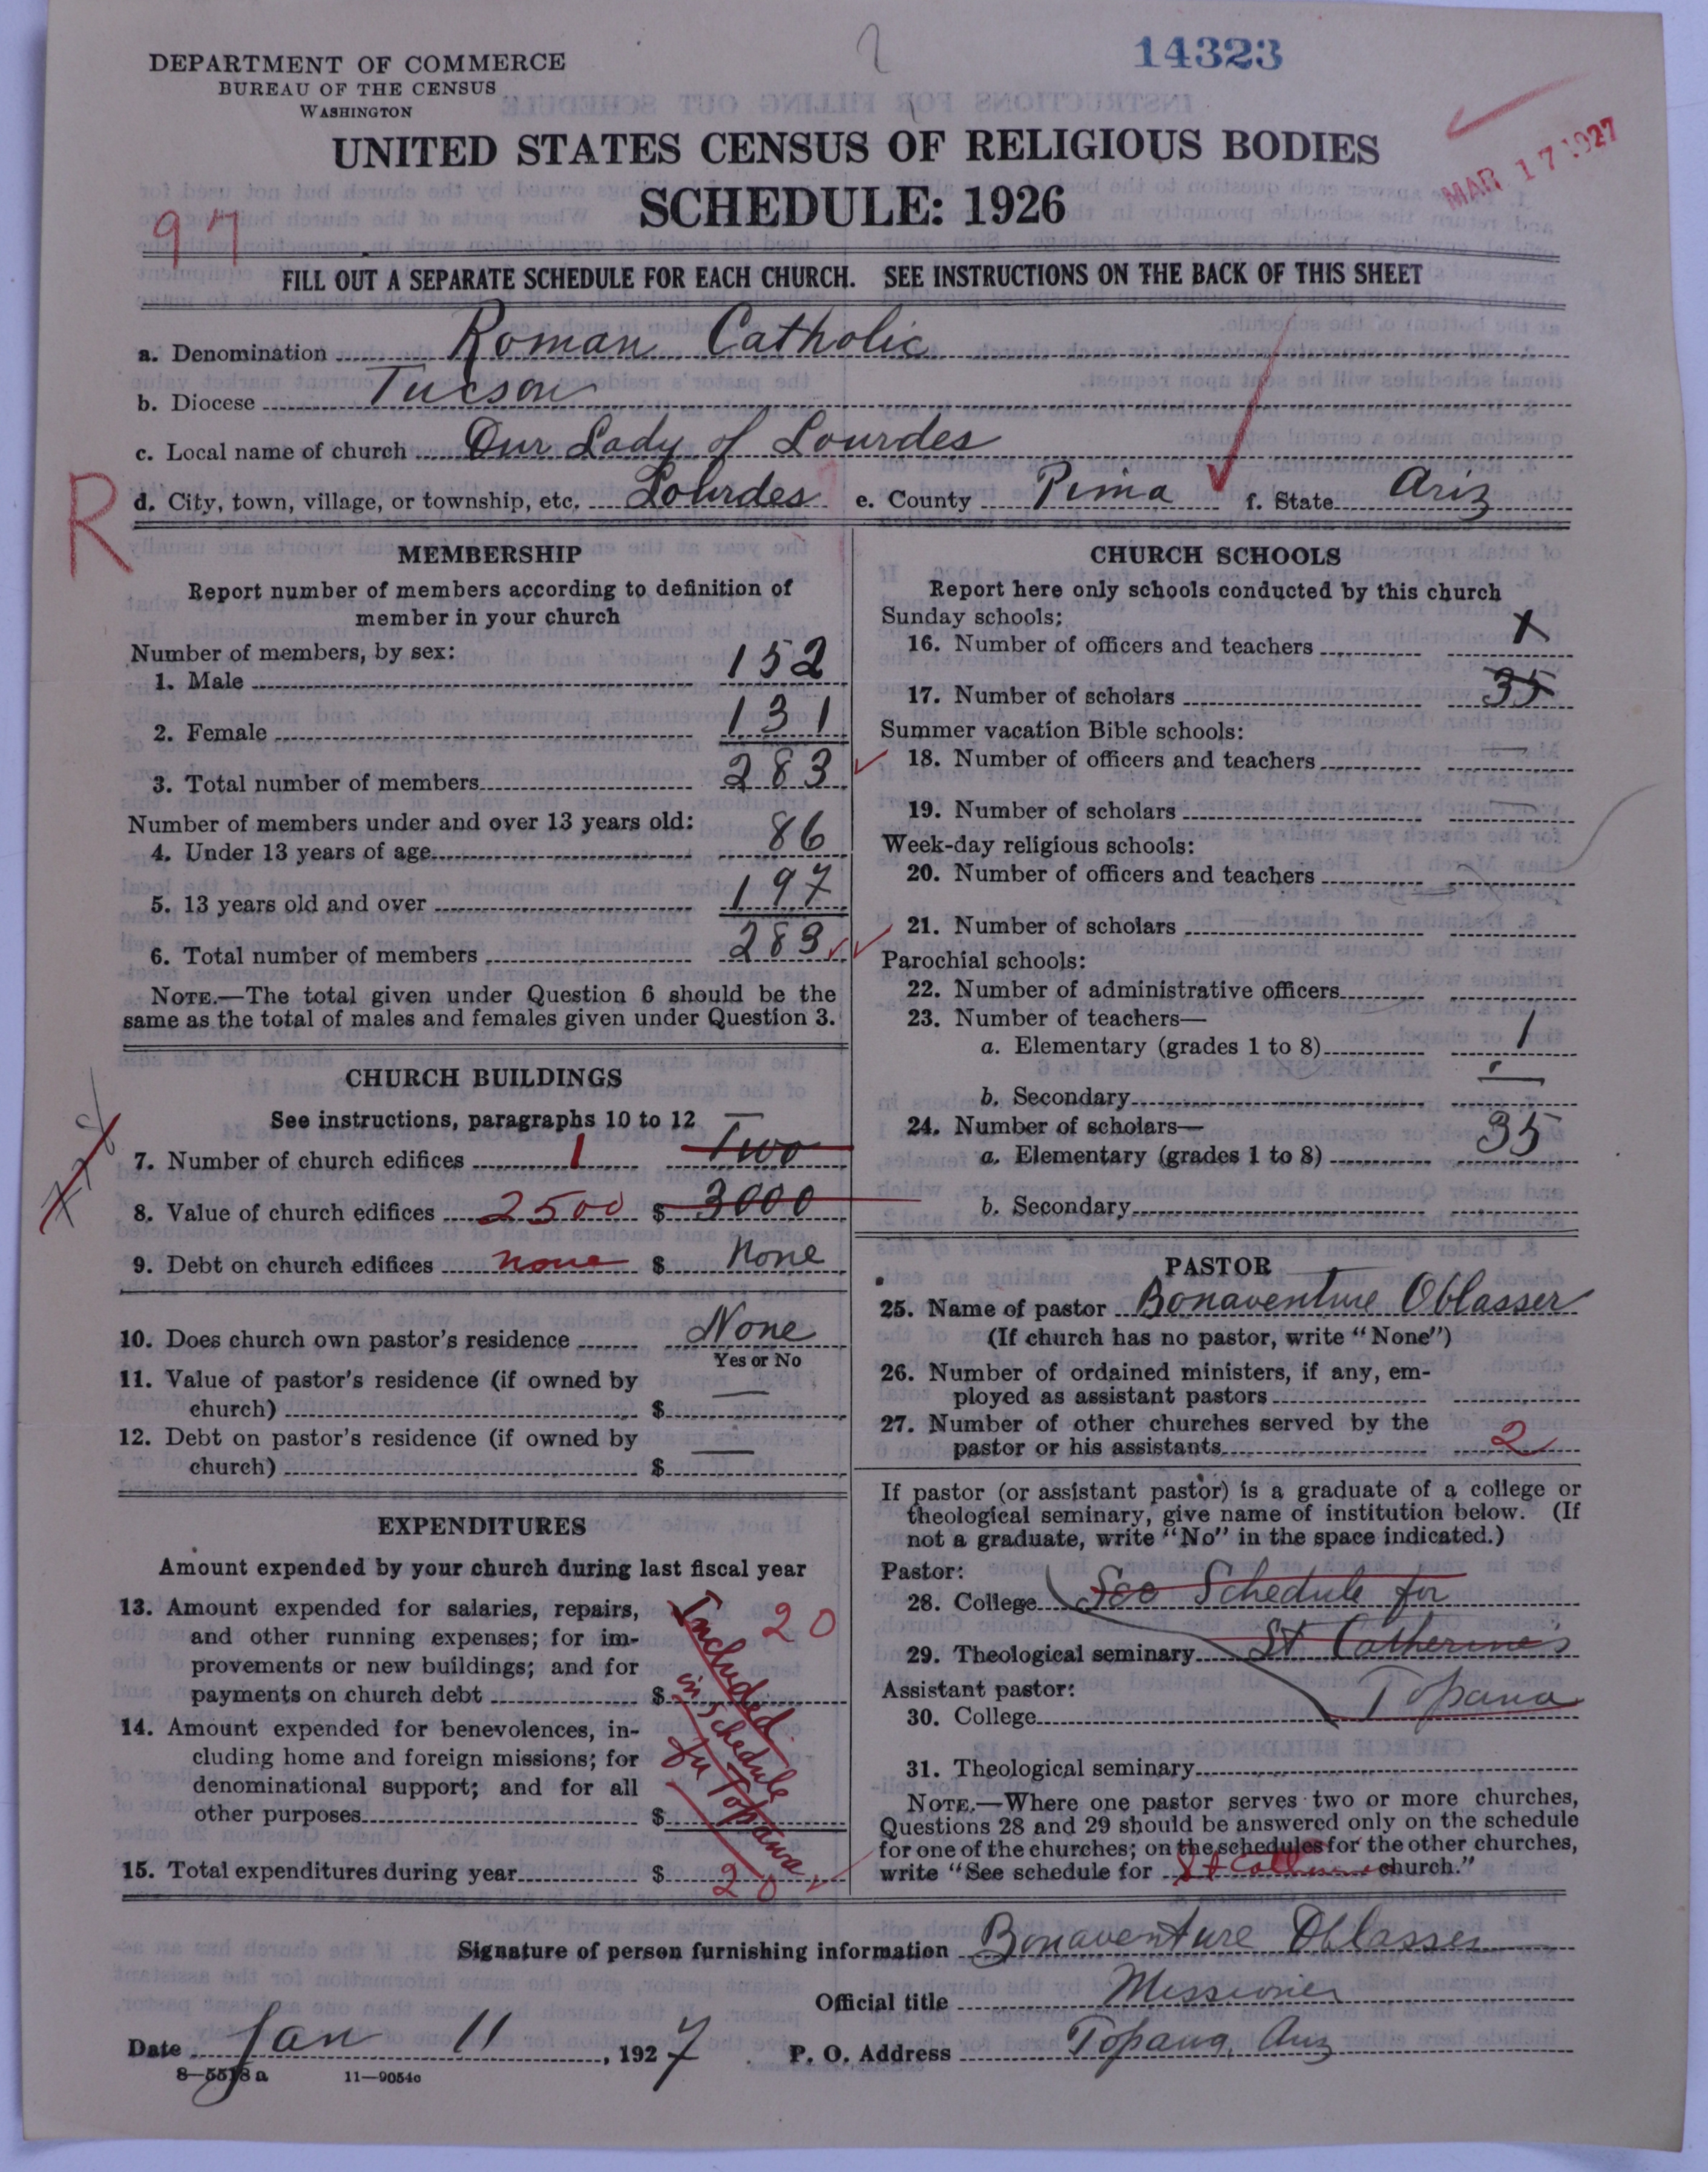 14323
DEPARTMENT OF COMMERCE
BUREAU OF THE CENSUS
WASHINGTON
UNITED STATES CENSUS OF RELIGIOUS BODIES
MAR 17 1927
SCHEDULE: 1926
97
FILL OUT A SEPARATE SCHEDULE FOR EACH CHURCH. SEE INSTRUCTIONS ON THE BACK OF THIS SHEET
a. Denomination Roman Catholic
b. Diocese Tucson
c. Local name of church Our Lady of Lourdes
R
d. City, town, village, or township, etc. Lourdes e. County Pima f. State Ariz
MEMBERSHIP
Report number of members according to definition of
member in your church
Number of members, by sex:
1. Male 152
2. Female 131
3. Total number of members 283
Number of members under and over 13 years old:
4. Under 13 years of age 86
5. 13 years old and over 197
6. Total number of members 283
NOTE.—The total given under Question 6 should be the
same as the total of males and females given under Question 3.
CHURCH BUILDINGS
See instructions, paragraphs 10 to 12
7. Number of church edifices 1 Two
8. Value of church edifices 2500 $ 3000
9. Debt on church edifices none $ None
10. Does church own pastor's residence None
Yes or No
11. Value of pastor's residence (if owned by
church) $ —
12. Debt on pastor's residence (if owned by
church) $ —
EXPENDITURES
Amount expended by your church during last fiscal year
13. Amount expended for salaries, repairs,
and other running expenses; for im-
provements or new buildings; and for
payments on church debt $ 20
14. Amount expended for benevolences, in-
cluding home and foreign missions; for
denominational support; and for all
other purposes $
Included
in schedule
for Topawa
15. Total expenditures during year $ 20
CHURCH SCHOOLS
Report here only schools conducted by this church
Sunday schools:
16. Number of officers and teachers
17. Number of scholars 35
Summer vacation Bible schools:
18. Number of officers and teachers —
19. Number of scholars —
Week-day religious schools:
20. Number of officers and teachers —
21. Number of scholars
Parochial schools:
22. Number of administrative officers
23. Number of teachers—
a. Elementary (grades 1 to 8) 1
b. Secondary —
24. Number of scholars—
a. Elementary (grades 1 to 8) 35
b. Secondary
PASTOR
25. Name of pastor Bonaventure Oblasser
(If church has no pastor, write "None")
26. Number of ordained ministers, if any, em-
ployed as assistant pastors
27. Number of other churches served by the
pastor or his assistants 2
If pastor (or assistant pastor) is a graduate of a college or
theological seminary, give name of institution below. (If
not a graduate, write "No" in the space indicated.)
Pastor:
28. College See Schedule for
29. Theological seminary St Catherine's
Assistant pastor: Topawa
30. College
31. Theological seminary
NOTE.—Where one pastor serves two or more churches,
Questions 28 and 29 should be answered only on the schedule
for one of the churches; on the schedules for the other churches,
write "See schedule for St Catherine church."
Signature of person furnishing information Bonaventure Oblasser
Official title Missioner
Date Jan 11, 1927 P. O. Address Topawa, Ariz
8—5518a 11—9054c